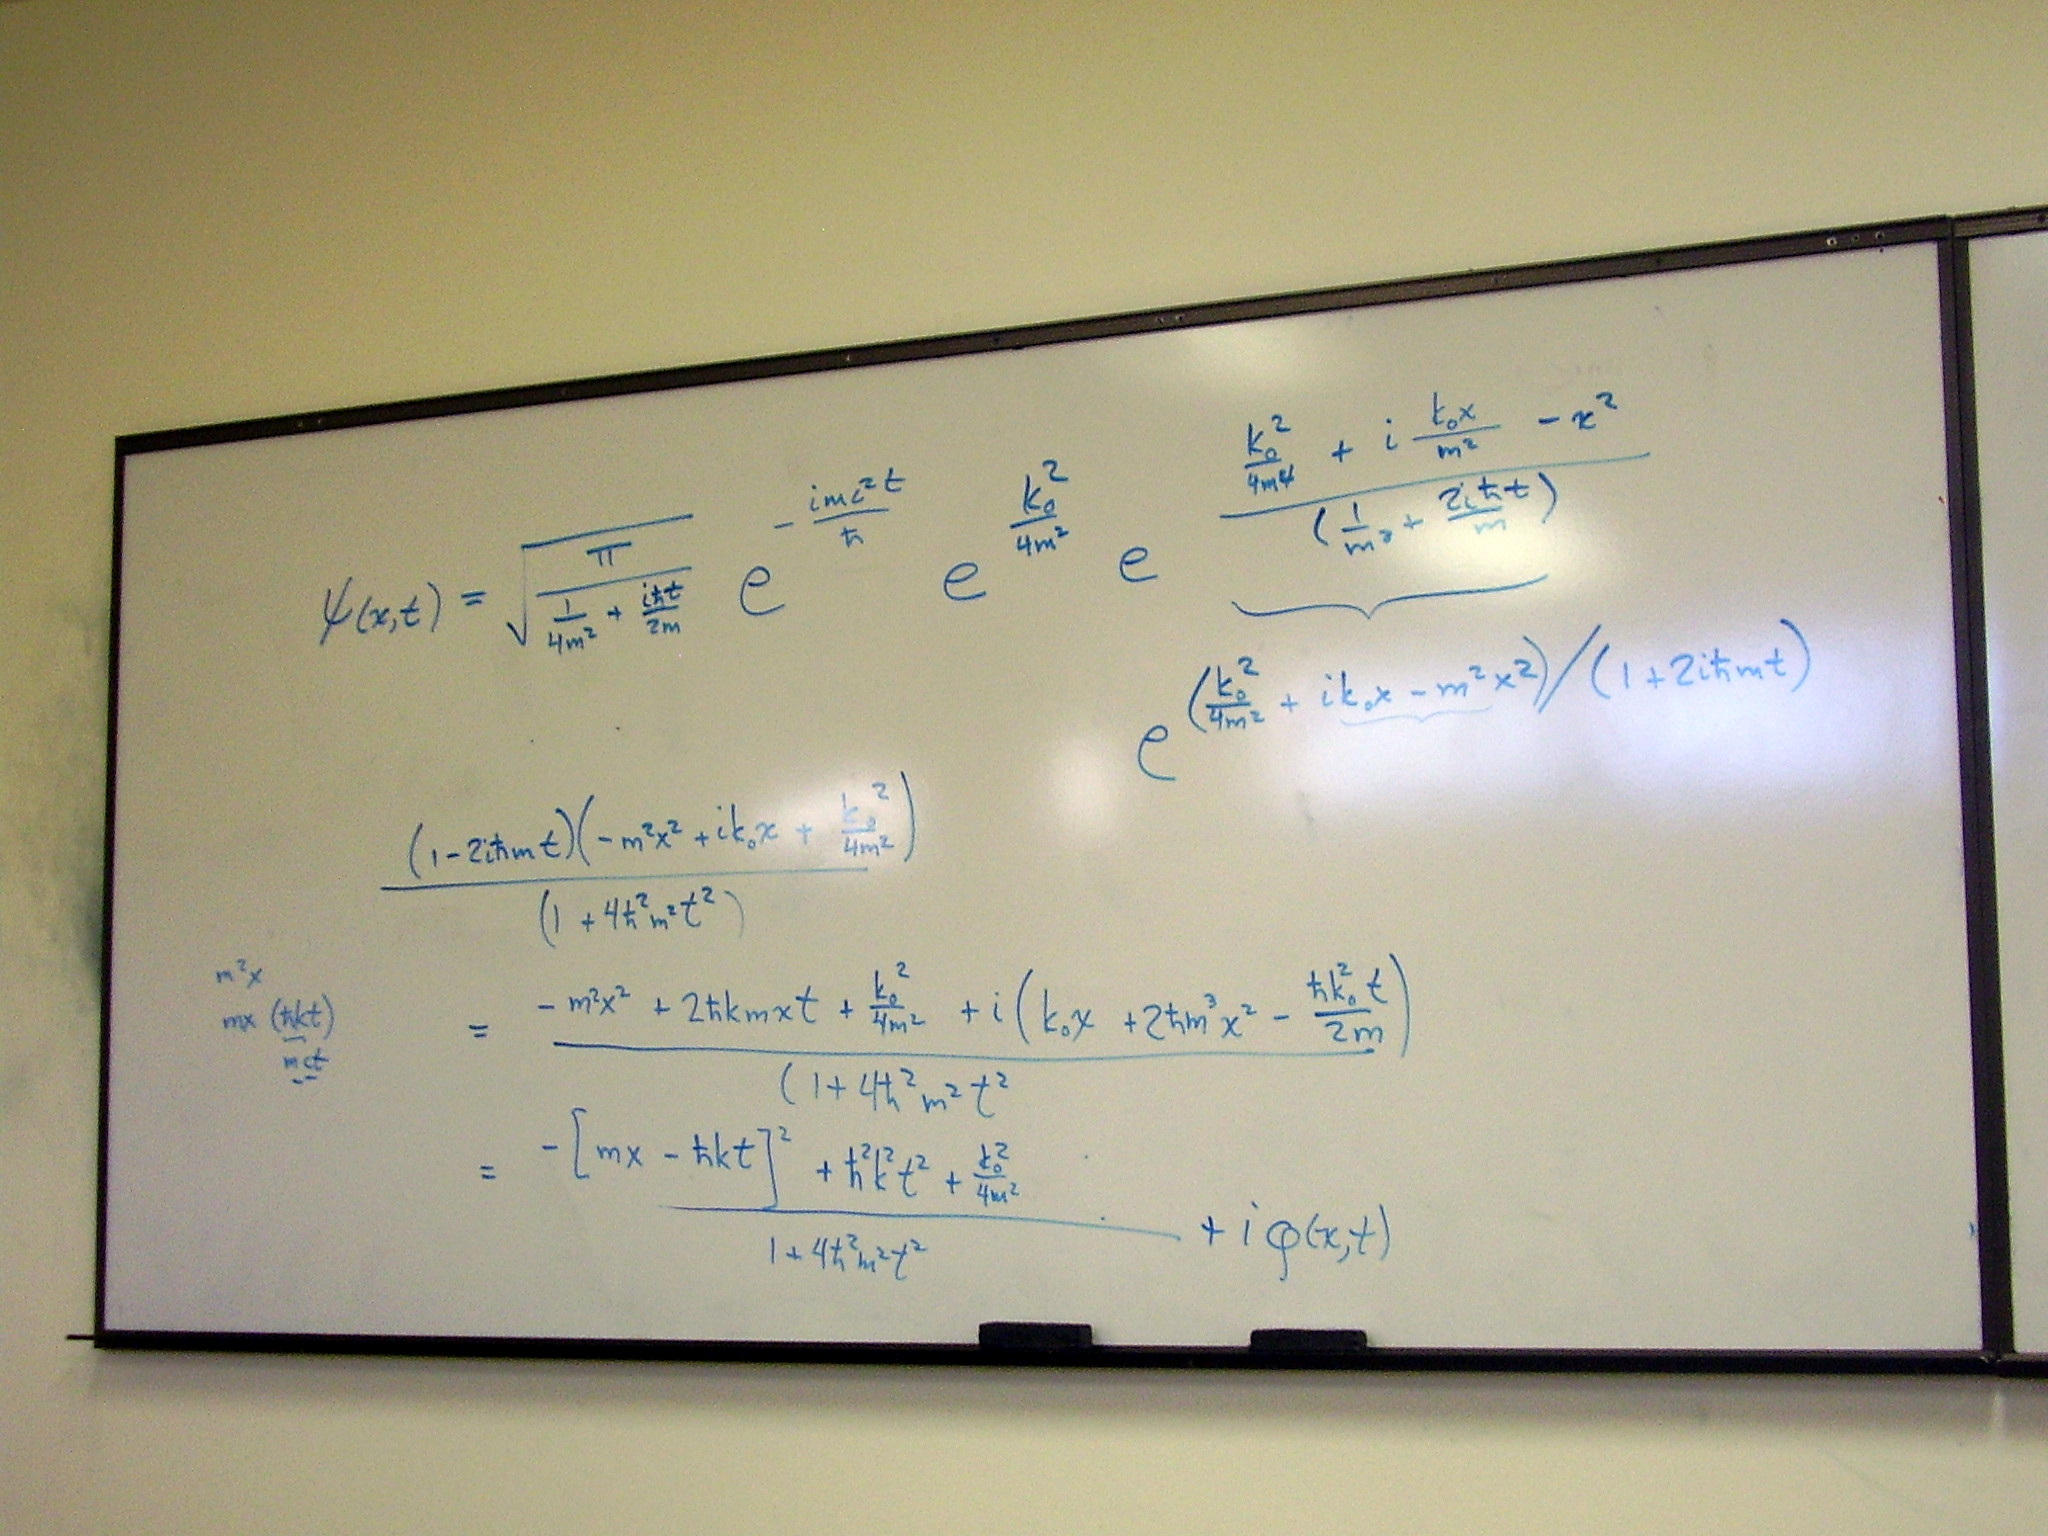 ψ(x,t) = √(π / (1/4m² + iħt/2m)) e^(-imc²t/ħ) e^(k₀²/4m²) e^((k₀²/4m⁴ + i k₀x/m² - x²) / (1/m² + 2iħt/m))
e^((k₀²/4m² + ik₀x - m²x²)/(1+2iħmt))
(1-2iħmt)(-m²x² + ik₀x + k₀²/4m²) / (1 + 4ħ²m²t²)
m²x
mx (ħkt)
mct
= (-m²x² + 2ħkmxt + k₀²/4m² + i(k₀x + 2ħm³x² - ħk₀²t/2m)) / (1+4ħ²m²t²
= (-[mx - ħkt]² + ħ²k²t² + k₀²/4m²) / (1+4ħ²m²t²) + iφ(x,t)